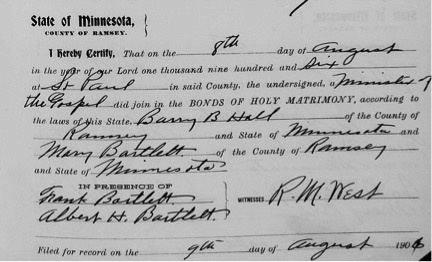 State of Minnesota,
COUNTY OF RAMSEY.
I Hereby Certify, That on the 8th day of August
in the year of our Lord one thousand nine hundred and Six
at St Paul in said County, the undersigned, a Minister of
the Gospel did join in the BONDS OF HOLY MATRIMONY, according to
the laws of this State, Barry B Hall of the County of
Ramsey and State of Minnesota and
Mary Bartlett of the County of Ramsey
and State of Minnesota
IN PRESENCE OF
Frank Bartlett
Albert H. Bartlett
WITNESSES
R. M. West
Filed for record on the 9th day of August 1906
State of Minnesota,
COUNTY OF RAMSEY.